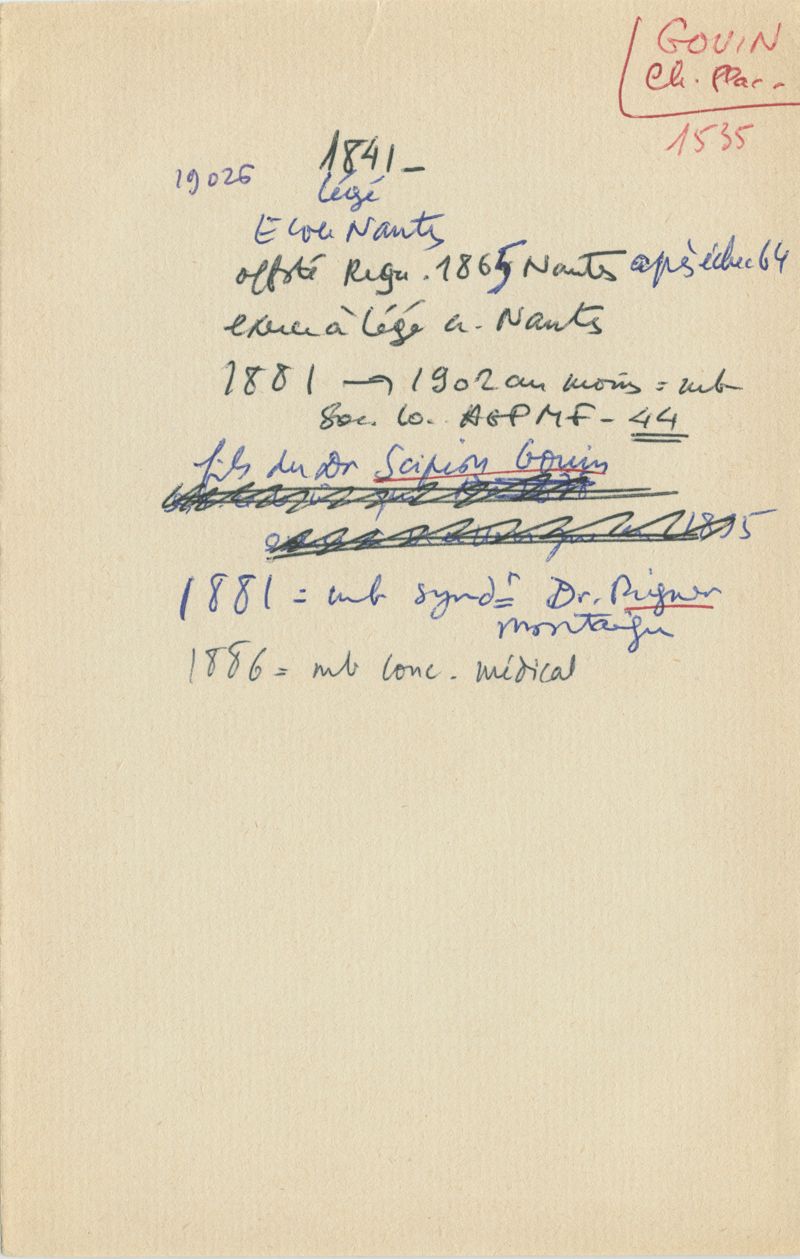 GOUIN
Ch. Plac.
1535
1841 -
19026
Légé
Ecole Nantes
off. sté Regu. 1865 Nantes après échec 64
exerce à Légé a. Nantes
1881 → 1902 au moins = mb
Soc. lo. AGPMF - 44
fils du Dr Scipion Gouin
1895
1881 = mb synd. Dr.
Montaigu
1886 = mb Conc. médical